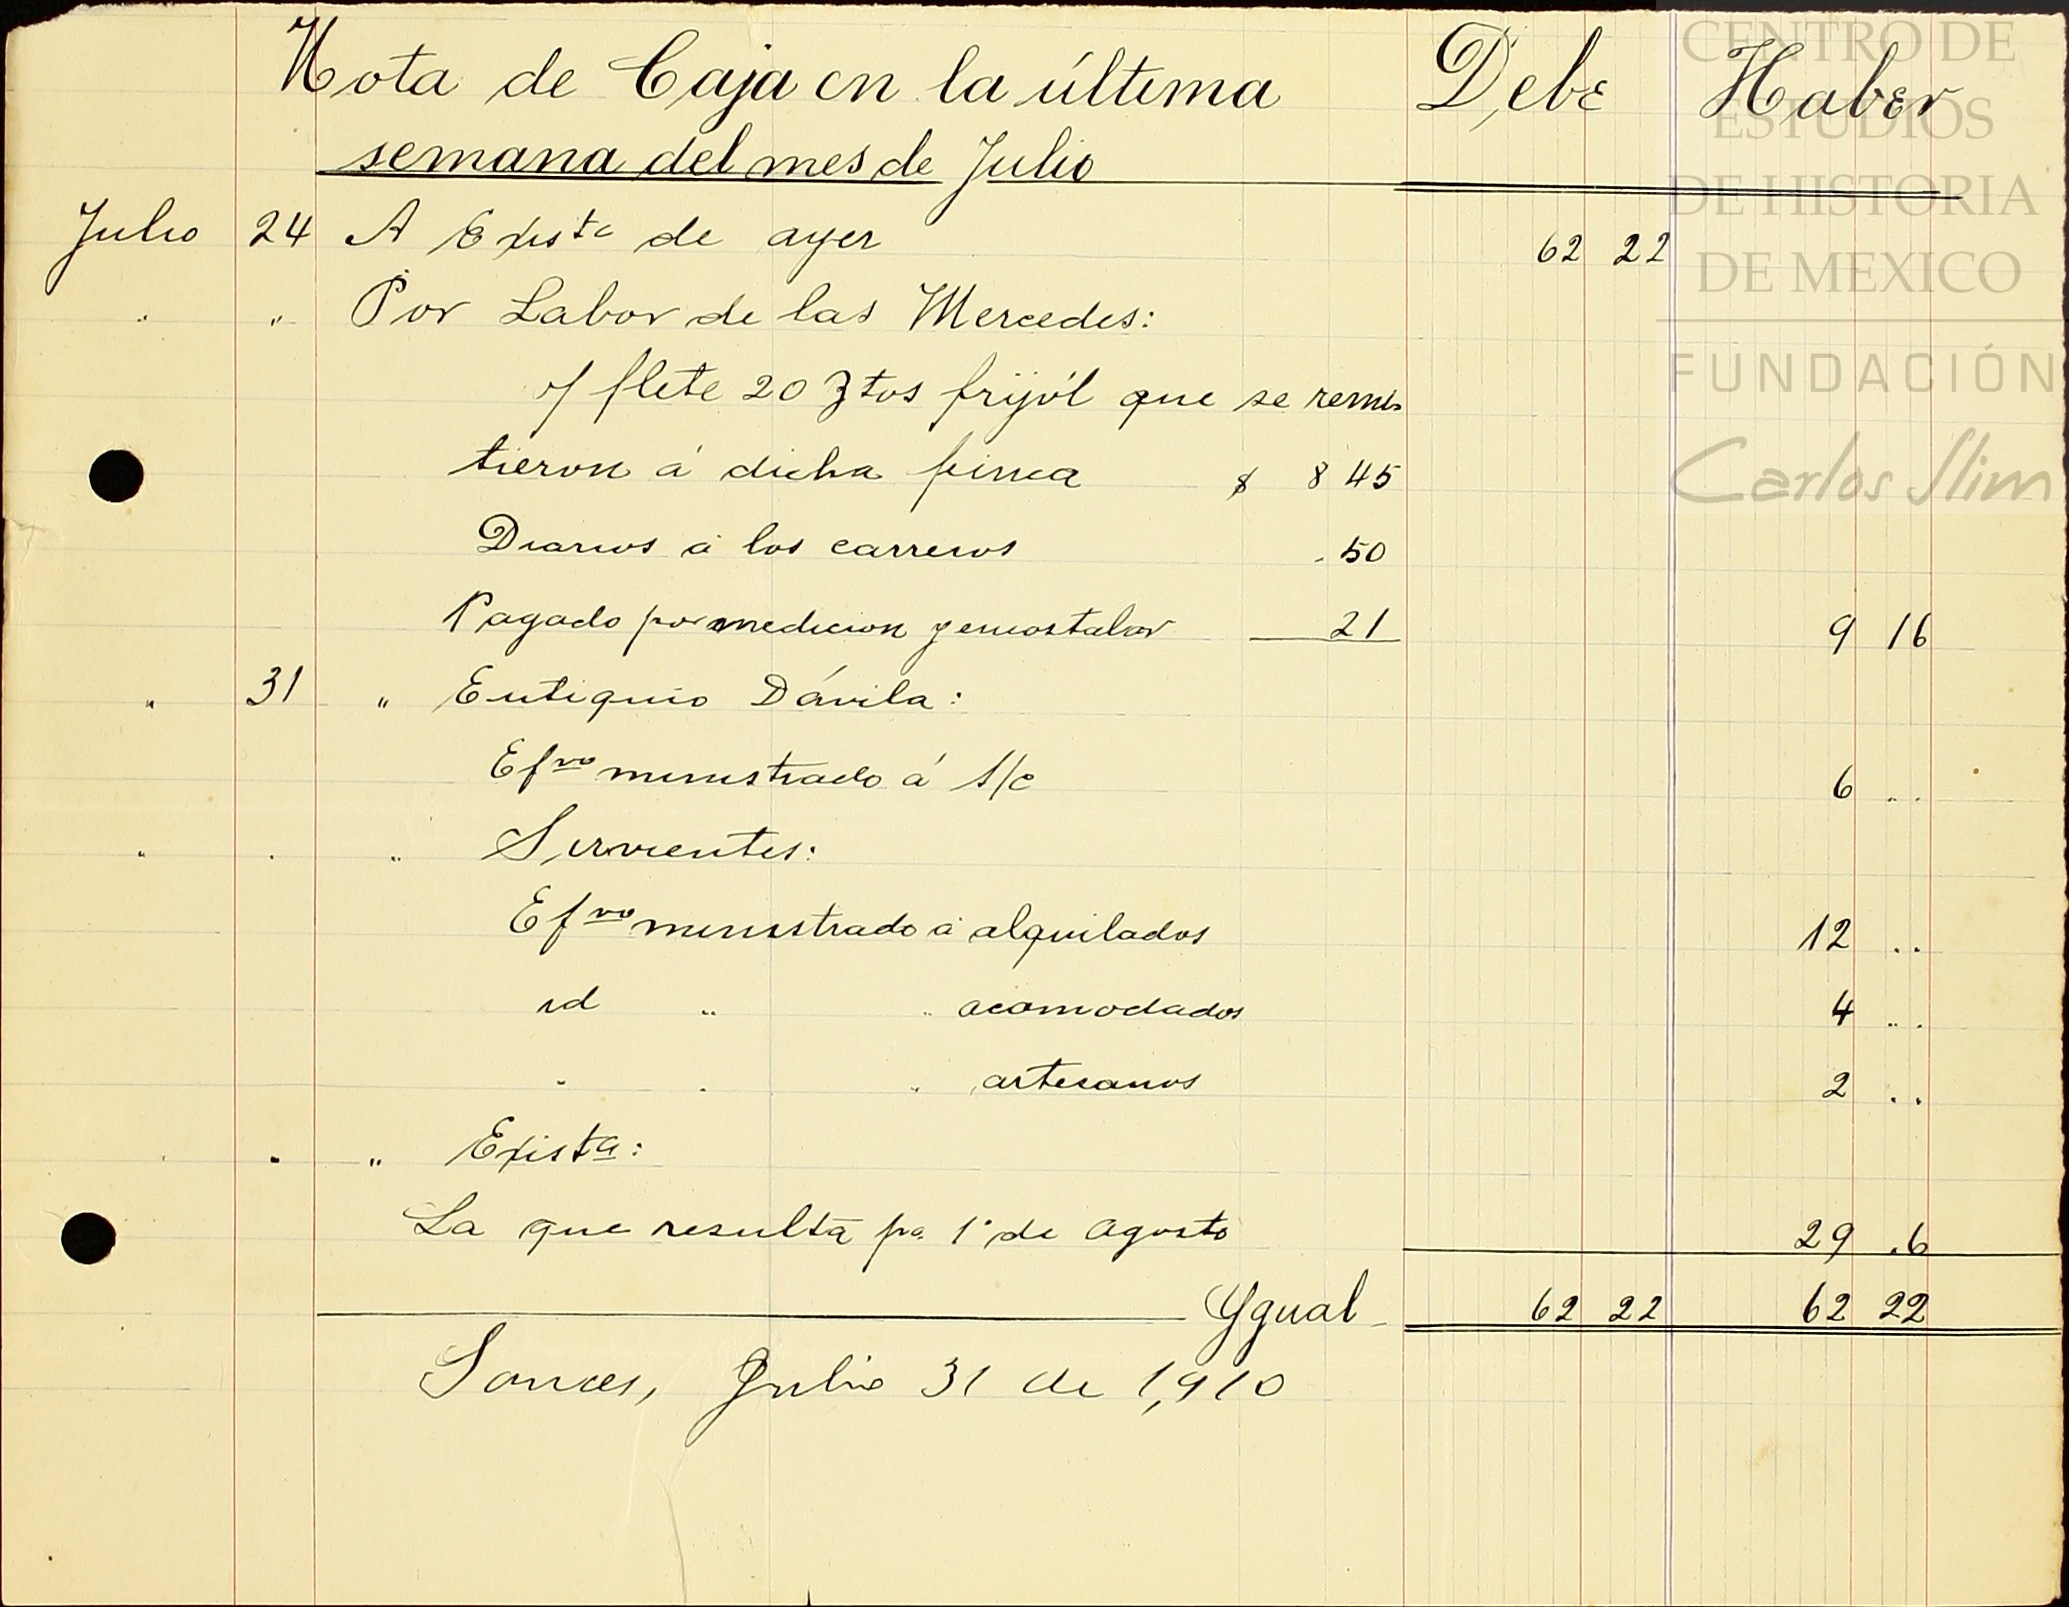 Nota de Caja en la última Debe Haber
semana del mes de Julio
Julio 24 A Existª de ayer 62 22
" " Por Labor de las Mercedes:
s/ flete 20 Ztos frijól que se remi-
tieron á dicha finca $ 8 45
Diarios á los carreros . 50
Pagado por medicion y encostalar 21 9 16
" 31 " Eutiquio Dávila:
Efvo ministrado á S/c 6 ..
" . " Sirvientes:
Efvo ministrado á alquilados 12 ..
id " " acomodados 4 ..
" . " artesanos 2 ..
. . " Existª:
La que resulta pª 1º de Agosto 29 .6
Ygual 62 22 62 22
Sauces, Julio 31 de 1,910
CENTRO DE
ESTUDIOS
DE HISTORIA
DE MEXICO
FUNDACIÓN
Carlos Slim